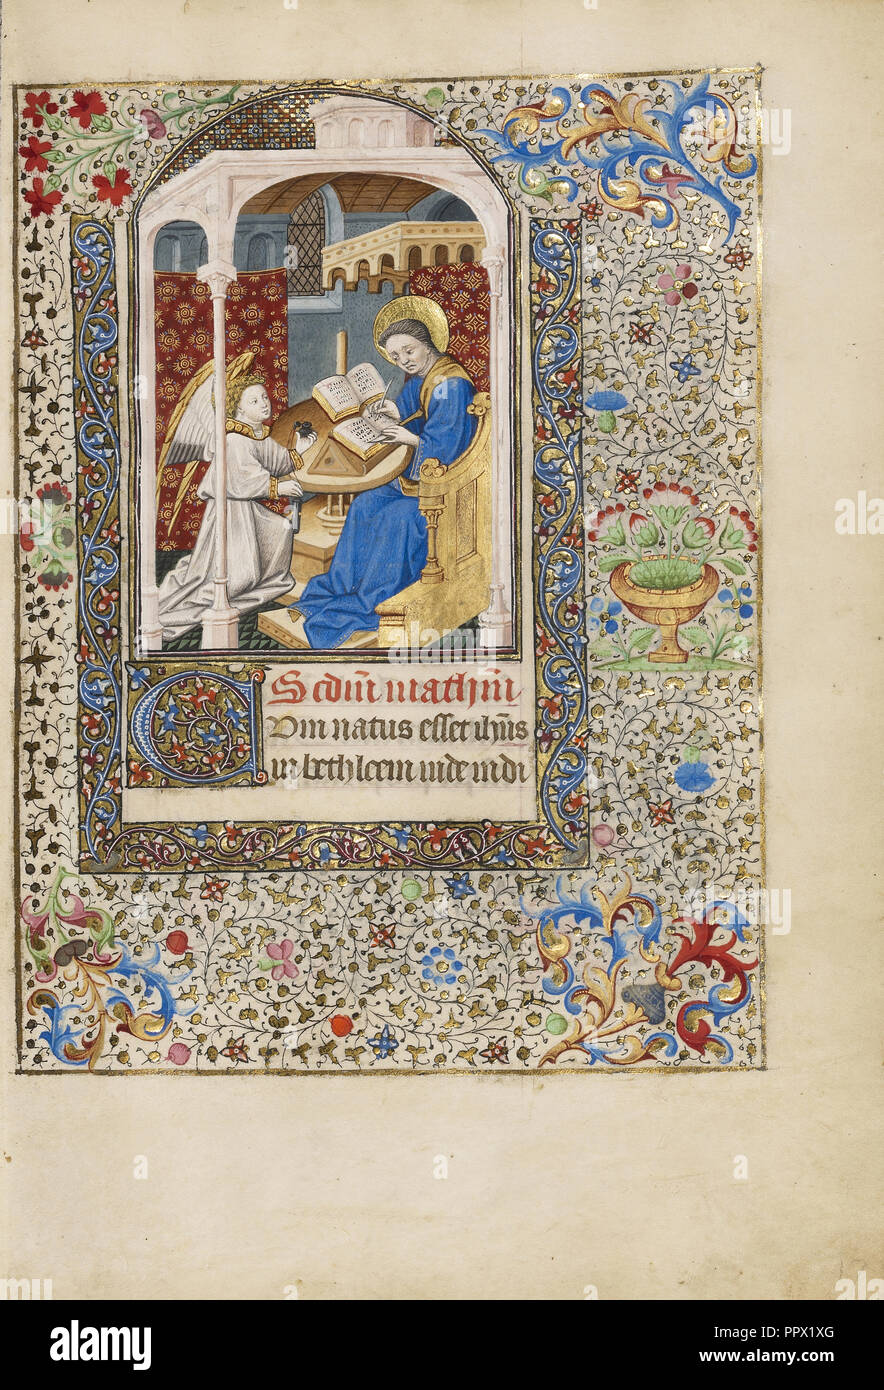 Scd'm mathm
Cum natus esset ihus
in bethleem iude in di
alamy
Image ID: PPX1XG
www.alamy.com